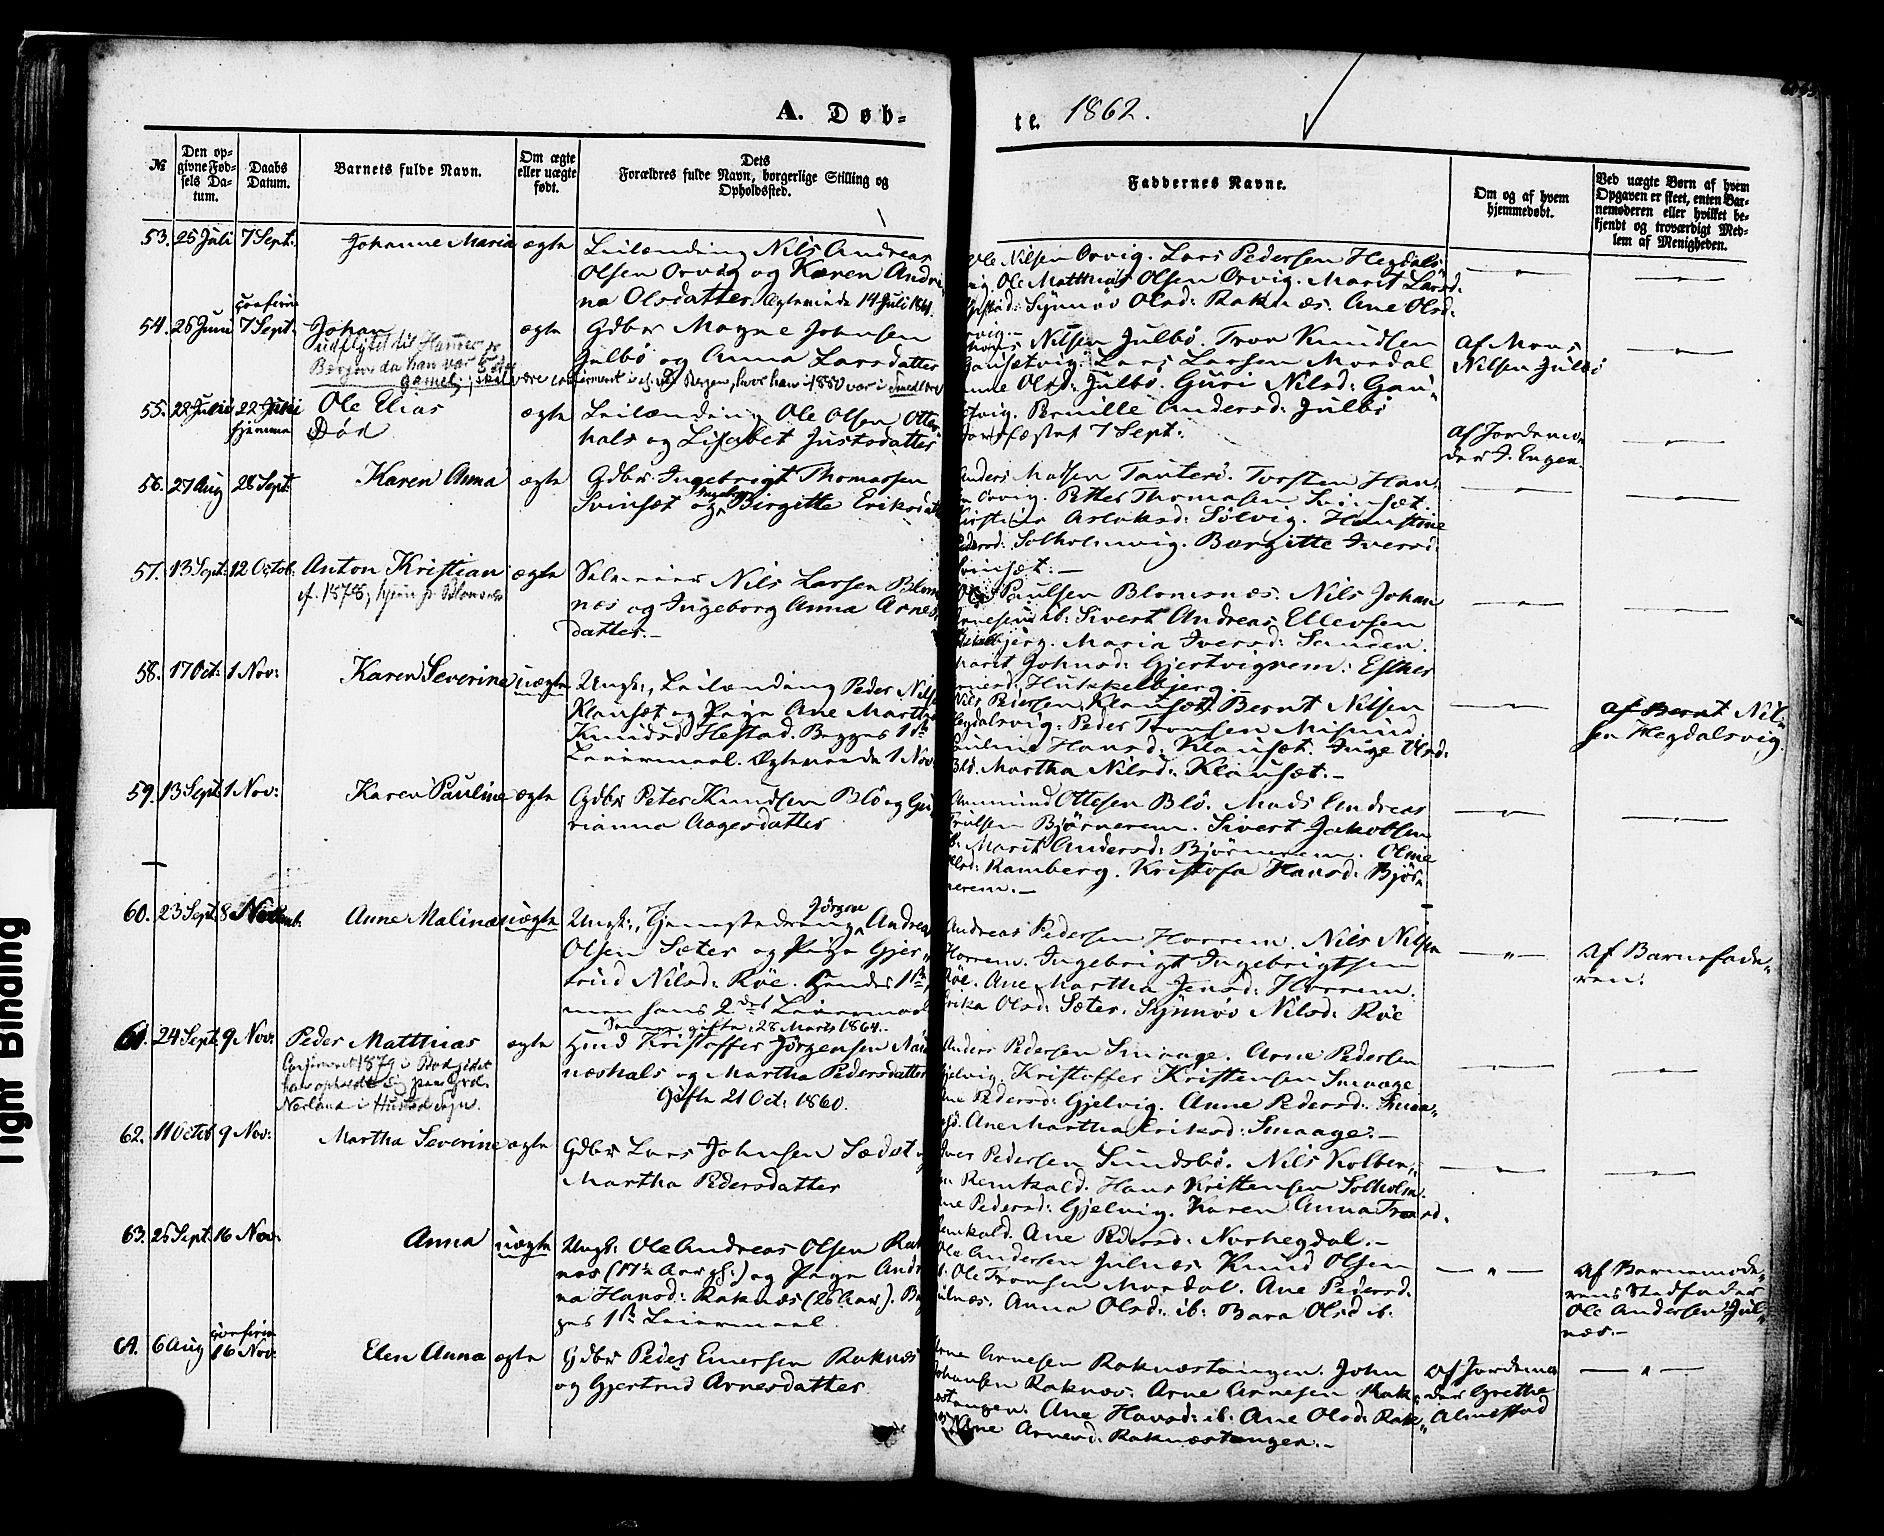 A. Døb-
te. 1862.
№
Den op-
givne Fød-
sels Da-
tum.
Daabs
Datum.
Barnets fulde Navn.
Om ægte
eller uægte
født.
Dets
Forældres fulde Navn, borgerlige Stilling og
Opholdssted.
Faddernes Navne.
Om og af hvem
hjemmedøbt.
Ved uægte Børn af hvem
Opgaven er skeet, enten Bar-
nemoderen eller hvilket be-
kjendt og troværdigt Med-
lem af Menigheden.
53. 25 Juli 7 Sept: Johanne Maria ægte
Leilænding Nils Andreas
Olsen Orvig og Karen Andri-
na Olsdatter. Ægteviede 14 Juli 1861.
Ole Nilsen Orvig. Lars Pedersen Hegdals-
vig. Ole Matthias Olsen Orvig. Marit Larsd:
Synnøv Olsd: Raknæs. Ane Olsd:
Orvig.-
54. 26 Juni confirm 7 Sept. Johan ægte
udflyttet til
Bergen da han var 5 Aar
gamel; skal være confirmeret i Bergen, hvor han i 1880 var i Smedlære
Gdbr Magne Johnsen
Julbø og Anna Larsdatter
Mons Nilsen Julbø. Tron Knudsen
Gausetvig. Lars Larsen Mordal
Anne Olsd: Julbø. Guri Nilsd: Gau-
setvig. Pernille Andersd: Julbø
Af Mons
Nilsen Julbø
55. 22 Juni 22 Juni hjemme Ole Elias ægte
Død
Leilænding Ole Olsen Otter-
hals og Lisabet Justsdatter
stadfæstet 7 Sept:
Af Jordemo-
der J. Engen.
56. 27 Aug 28 Sept. Karen Anna ægte
Gdbr Ingebrigt Thomassen
Svinset og Ingeborg Birgitte Eriksdatter
Anders Madsen Tauterø. Torsten Han-
sen Orvig. Petter Thomasen Svinset.
Kirstine Aslaksd: Sølvig. Hanstine
Pedersd: Solholmvig. Borgitte Iversd:
Svinset.-
57. 13 Sept: 12 Octob: Anton Kristian ægte
cf. 1878, hjem fr.
Nils Larsen Blom-
næs og Ingeborg Anna Arnes-
datter.-
Paulsen Blomsnæs. Nils Johan
Arnesen ib: Sivert Andreas Ellevsen
Maria Iversd: Sanden.
Marit Johnsd: Gjertvigrem: Esther
Hukkelbjerg.-
58. 17 Oct: 1 Nov: Karen Severine uægte
Ungk:, Leilænding Peder Nilsen
Klauset og Pige Ane Martha
Knudsd Hestad. Begges 1ste
Leiermaal. Ægteviede 1 Nov:
Nils Pedersen Klauset. Bernt Nilsen
Hegdalsvig. Peder Tronsen Misund
Pauline Hansd: Klauset. Inge Olsd:
Martha Nilsd: Klauset.-
Af Bernt Nil-
sen Hegdalsvig.
59. 13 Sept. 1 Nov: Karen Pauline ægte
Gdbr Peter Knudsen Blø og Gu-
rianna Aagesdatter
Ammund Ottesen Blø. Mads Andreas
Trulsen Bjørnerem. Sivert Jakobsen
ib: Marit Andersd: Bjørnerem. Oline
Olsd: Ramberg. Kristofa Hansd: Bjør-
nerem.-
60. 23 Sept. 8 Novemb. Anne Malina uægte
Ungk:, Hjemstedreng Jørgen Andreas
Olsen Sæter og Pige Gjer-
trud Nilsd: Røe. Hendes 1ste,
men hans 2det Leiermaal
Samme gifte: 28 Marts 1864.
Andreas Pedersen Horrem. Nils Nilsen
Horrem. Ingebrigt Ingebrigtsen
Røe. Ane Martha Jensd: Horrem.
Erika Olsd: Sæter. Synnøv Nilsd: Røe
Af Barnefade-
ren.
61. 24 Sept. 9 Nov: Peder Matthias ægte
Confirmeret 1879 i Bud
Nerland i Hustad Sogn.
Hmd Kristoffer Jørgensen
næshals og Martha Pedersdatter
Gifte 21 Oct: 1860.
Anders Pedersen Smaage. Arne Pedersen
Gjelvig. Kristoffer Kristensen Smaage
Ane Pedersd: Gjelvig. Anne Pedersd: Smaa-
ge. Ane Martha Eriksd: Smaage.-
62. 11 Octob 9 Nov: Martha Severine ægte
Gdbr Lars Johnsen Sædet og
Martha Pedersdatter
Iver Pedersen Sundsbø. Nils Kolben-
sen Remkald. Hans Kristensen Solholm.
Ane Pedersd: Gjelvig. Karen Anna Tronsd.
Remkald. Ane Pedersd: Norhegdal.-
63. 25 Sept. 16 Nov: Anna uægte
Ungk: Ole Andreas Olsen Rak-
næs (17½ Aar gl:) og Pige Andri-
na Hansd: Raknæs (26 Aar). Beg-
ges 1ste Leiermaal.
Ole Andersen Julnæs. Knud Olsen
ib. Ole Tronsen Mordal. Ane Pedersd:
Julnæs. Anna Olsd: ib: Bara Olsd ib.
Af Barnemode-
rens Stedfader
Ole Andersen Jul-
næs.-
64. 6 Aug confirm 16 Nov: Elen Anna ægte
Gdbr Peder Einersen Raknæs
og Gjertrud Arnesdatter
Arne Arnesen Raknæstangen. John
Johansen Raknæs. Arne Arnesen Rak-
næstangen: Ane Hansd: ib: Ane Olsd: Rak-
næs. Ane Arnesd: Raknæstangen.-
Af Jordemo-
der Grethe
Almestad
Tight Binding